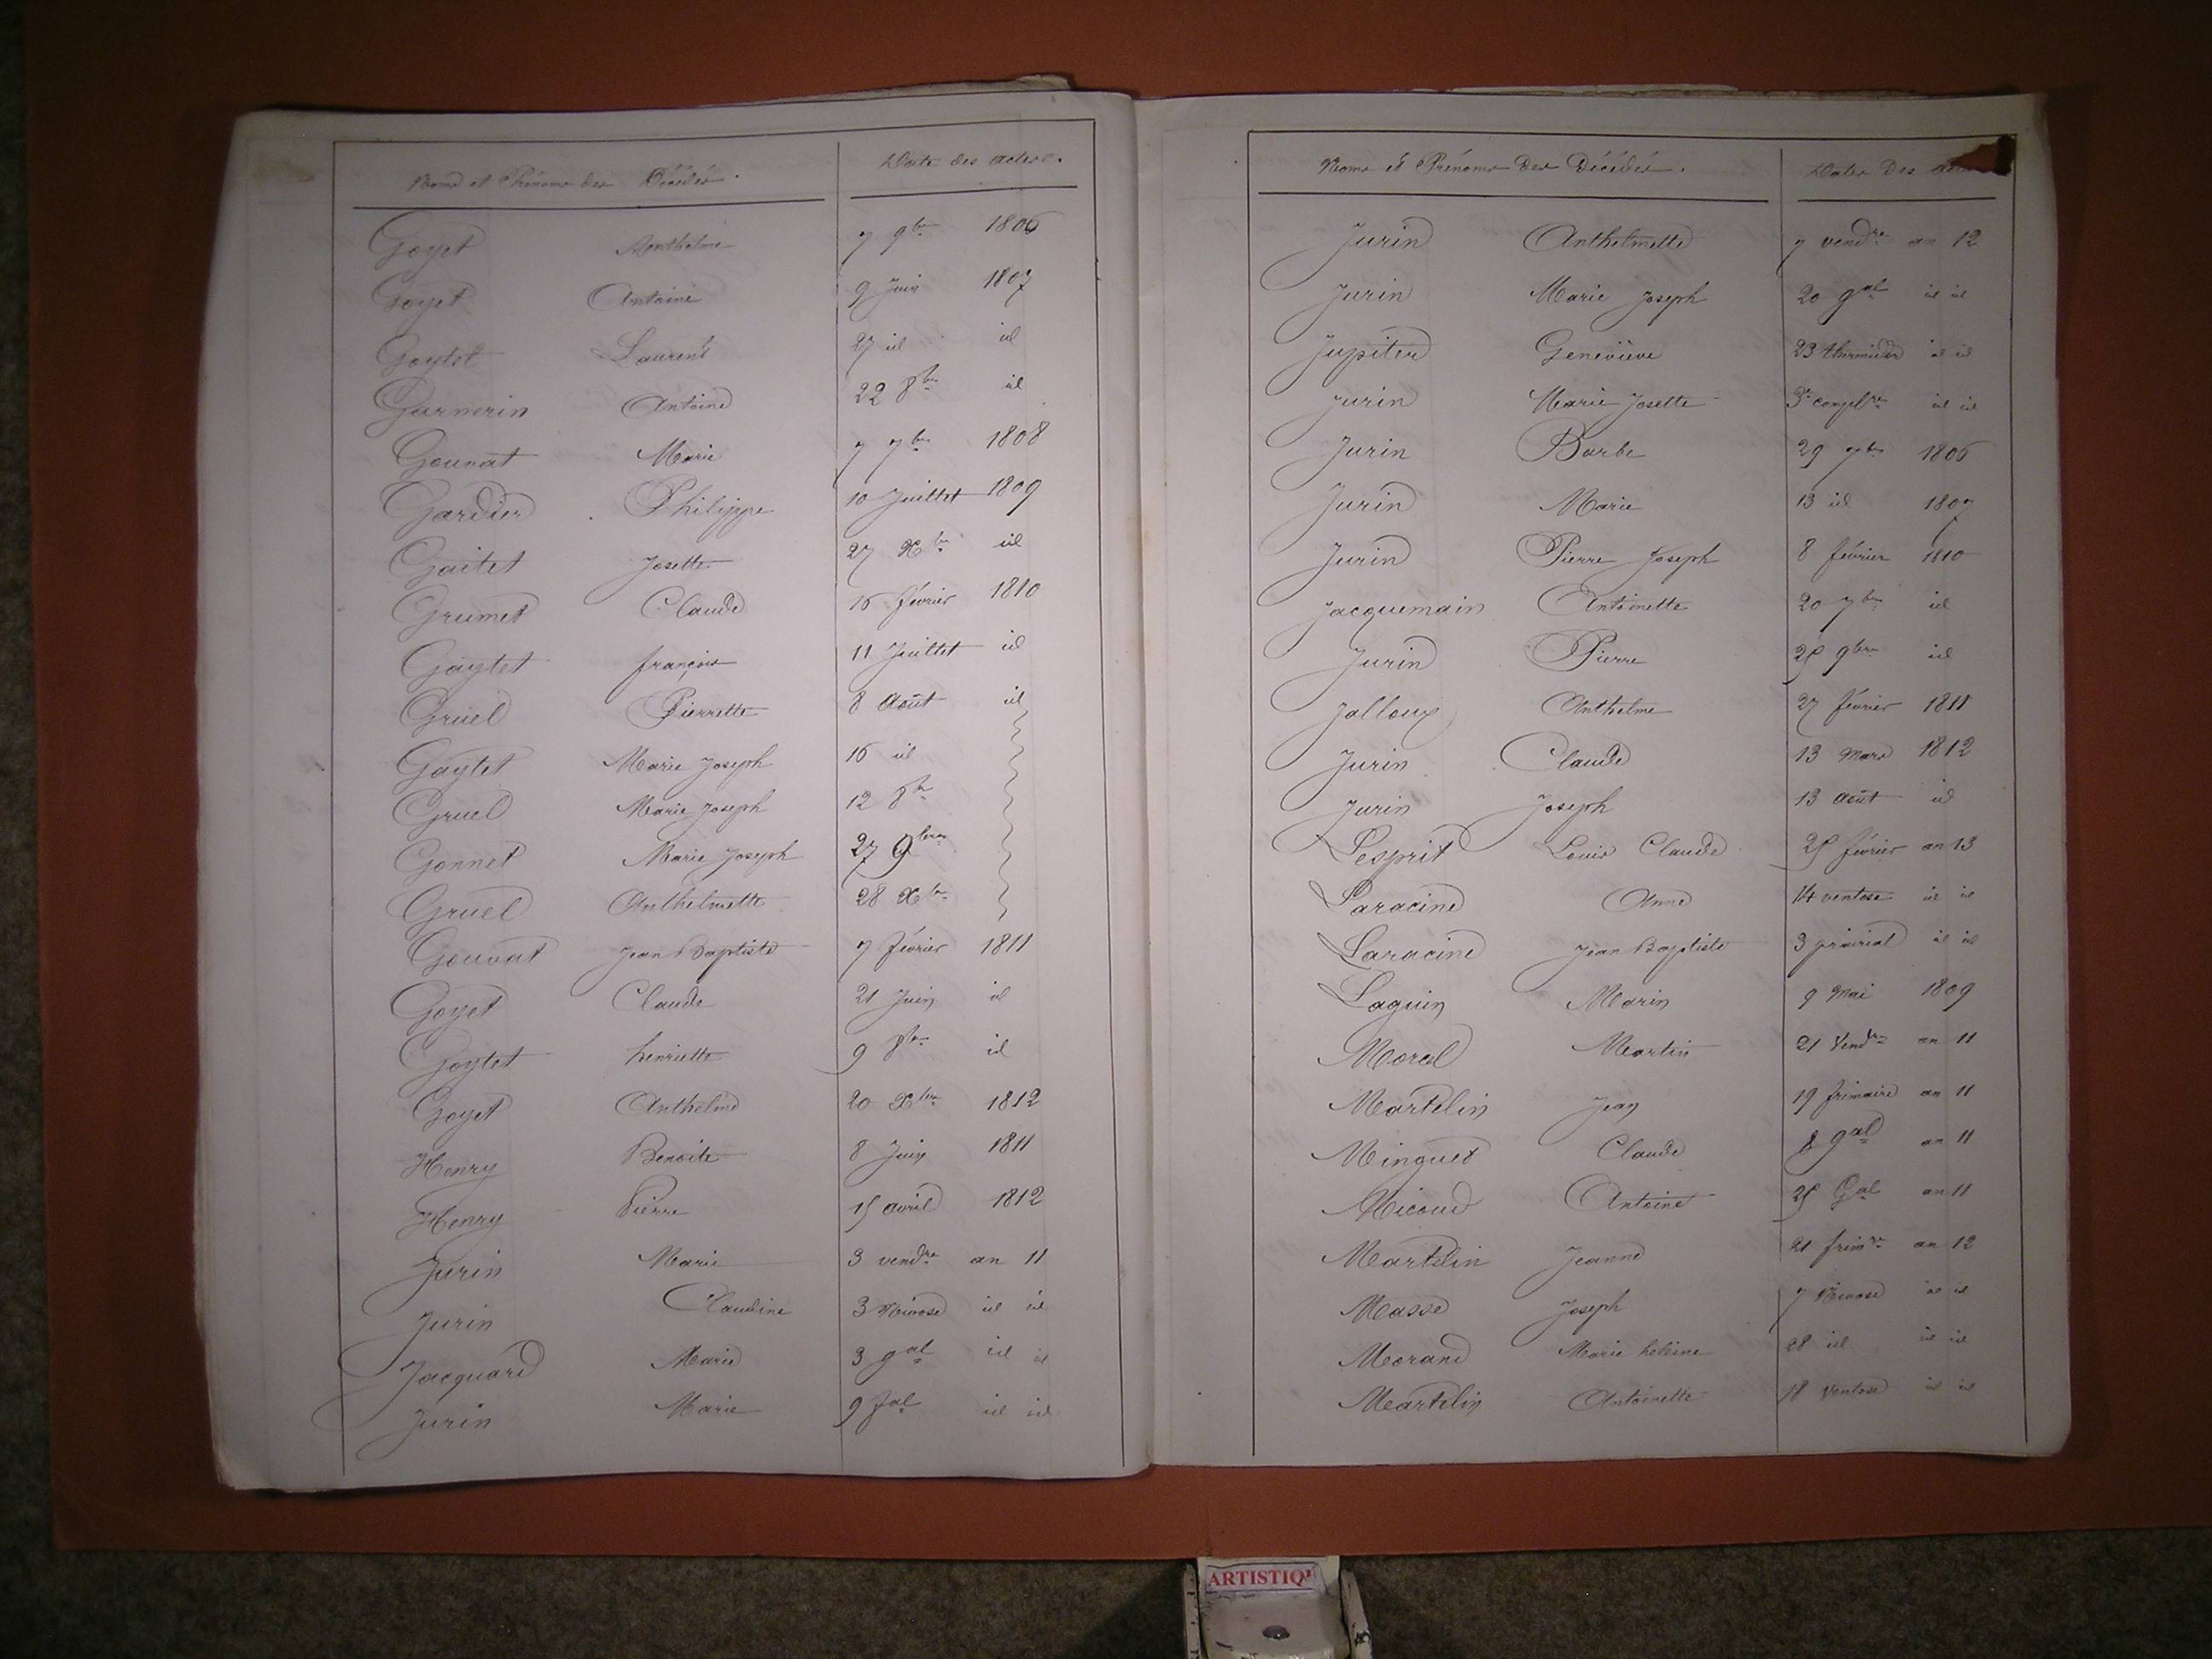 Noms et Prénoms des Décédés. Date des actes.
Goyet Anthelme 7 9bre 1806
Goyet Antoine 9 Juin 1807
Goytet Laurent 27 id id
Garnerin Antoine 22 8bre id
Gouvat Marie 7 7bre 1808
Gardier Philippe 10 Juillet 1809
Gaitet Josette 27 Xbre id
Grumet Claude 16 février 1810
Gaytet françois 11 Juillet id
Gruel Pierrette 8 Août id
Gaytet Marie Joseph 16 id
Gruel Marie Joseph 12 8bre
Gonnet Marie Joseph 27 9bre
Gruel Anthelmette 28 Xbre
Gouvat Jean Baptiste 7 février 1811
Goyet Claude 21 Juin id
Goytet henriette 9 8bre id
Goyet Anthelme 20 Xbre 1812
Henry Benoite 8 Juin 1811
Henry Pierre 15 avril 1812
Jurin Marie 3 vendre an 11
Jurin Claudine 3 Nivose id id
Jacquard Marie 3 gal id id
Jurin Marie 9 fal id id
Noms et Prénoms Des Décédés. Dates Des
Jurin Anthelmette 7 vendre an 12
Jurin Marie Joseph 20 gal id id
Jupiter Geneviève 23 thermidor id id
Jurin Marie Josette complre id id
Jurin Barbe 29 1806
Jurin Marie 13 id 1807
Jurin Pierre Joseph 8 février 1810
Jacquemain Antoinette 20 7bre id
Jurin Pierre 25 9bre id
Jalloux Anthelme 27 février 1811
Jurin Claude 13 Mars 1812
Jurin Joseph 13 Août id
Lesprit Louis Claude 25 février an 13
Laracine Anne 14 ventose id id
Laracine Jean Baptiste 3 prairial id id
Laguin Marin 9 Mai 1809
Morel Martin 21 Vendre an 11
Martelin Jean 19 frimaire an 11
Minguet Claude 8 gal an 11
Micoud Antoine 25 Gal an 11
Martelin Jeanne 21 frimre an 12
Masse Joseph 7 Nivose id id
Morand Marie hélène 28 id id id
Martelin Antoinette 18 Ventose id id
ARTISTIQ